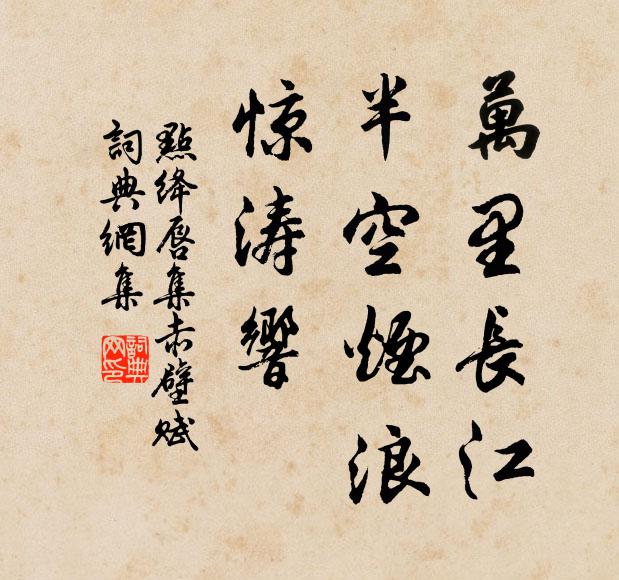 萬里長江
半空煙浪
惊涛響
點絳唇集赤壁賦
詞典網集
詞典
网印